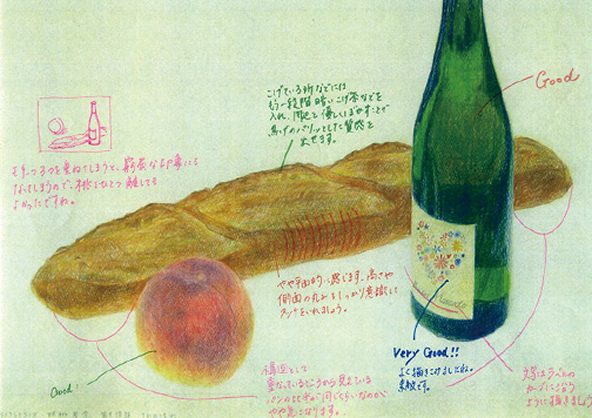 Good
こげている所などには
もう一段階暗いこげ茶などを
入れ、間を優しくぼかすことで
焦げのパリッとした質感を
出せます。
モチーフ3つを重ねてしまうと、窮屈な印象にも
なってしまうので、桃はひとつ離しても
よかったですね。
やや平面的に感じます。高さや
側面の丸みをしっかり意識して
タッチをいれましょう。
Very Good!!
よく描きこめましたね。
素敵です。
Good!
構図として
重なっているところから見えている
パンの比率が同じくらいなのが
やや気になります。
文字はラベルの
カーブにそうように
描きましょう